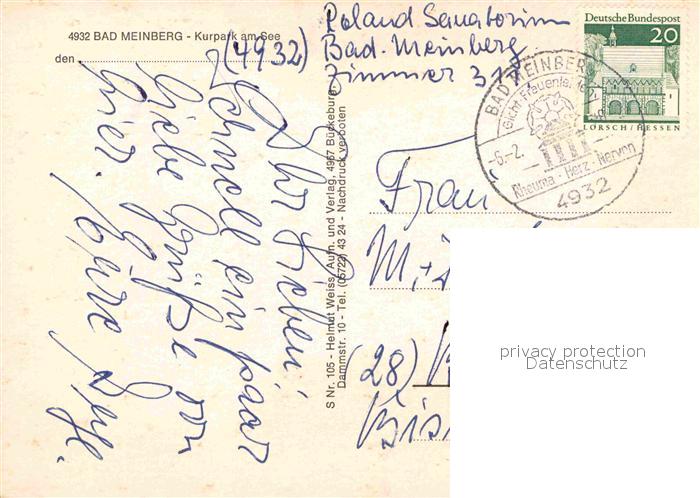 4932 BAD MEINBERG - Kurpark am See
den
Roland Sanatorium
(4932) Bad-Meinberg
Zimmer
Deutsche Bundespost
20
LORSCH/HESSEN
BAD MEINBERG
-6.-2.
Rheuma - Herz - Nerven
4932
Ihr Lieben!
Schnell ein paar
liebe Grüße von
hier. Eure
S Nr. 105 - Helmut Weiss, Aufn. und Verlag, 4967 Bückeburg,
Dammstr. 10 - Tel. (05722) 43 24 - Nachdruck verboten
Frau
(28)
privacy protection
Datenschutz